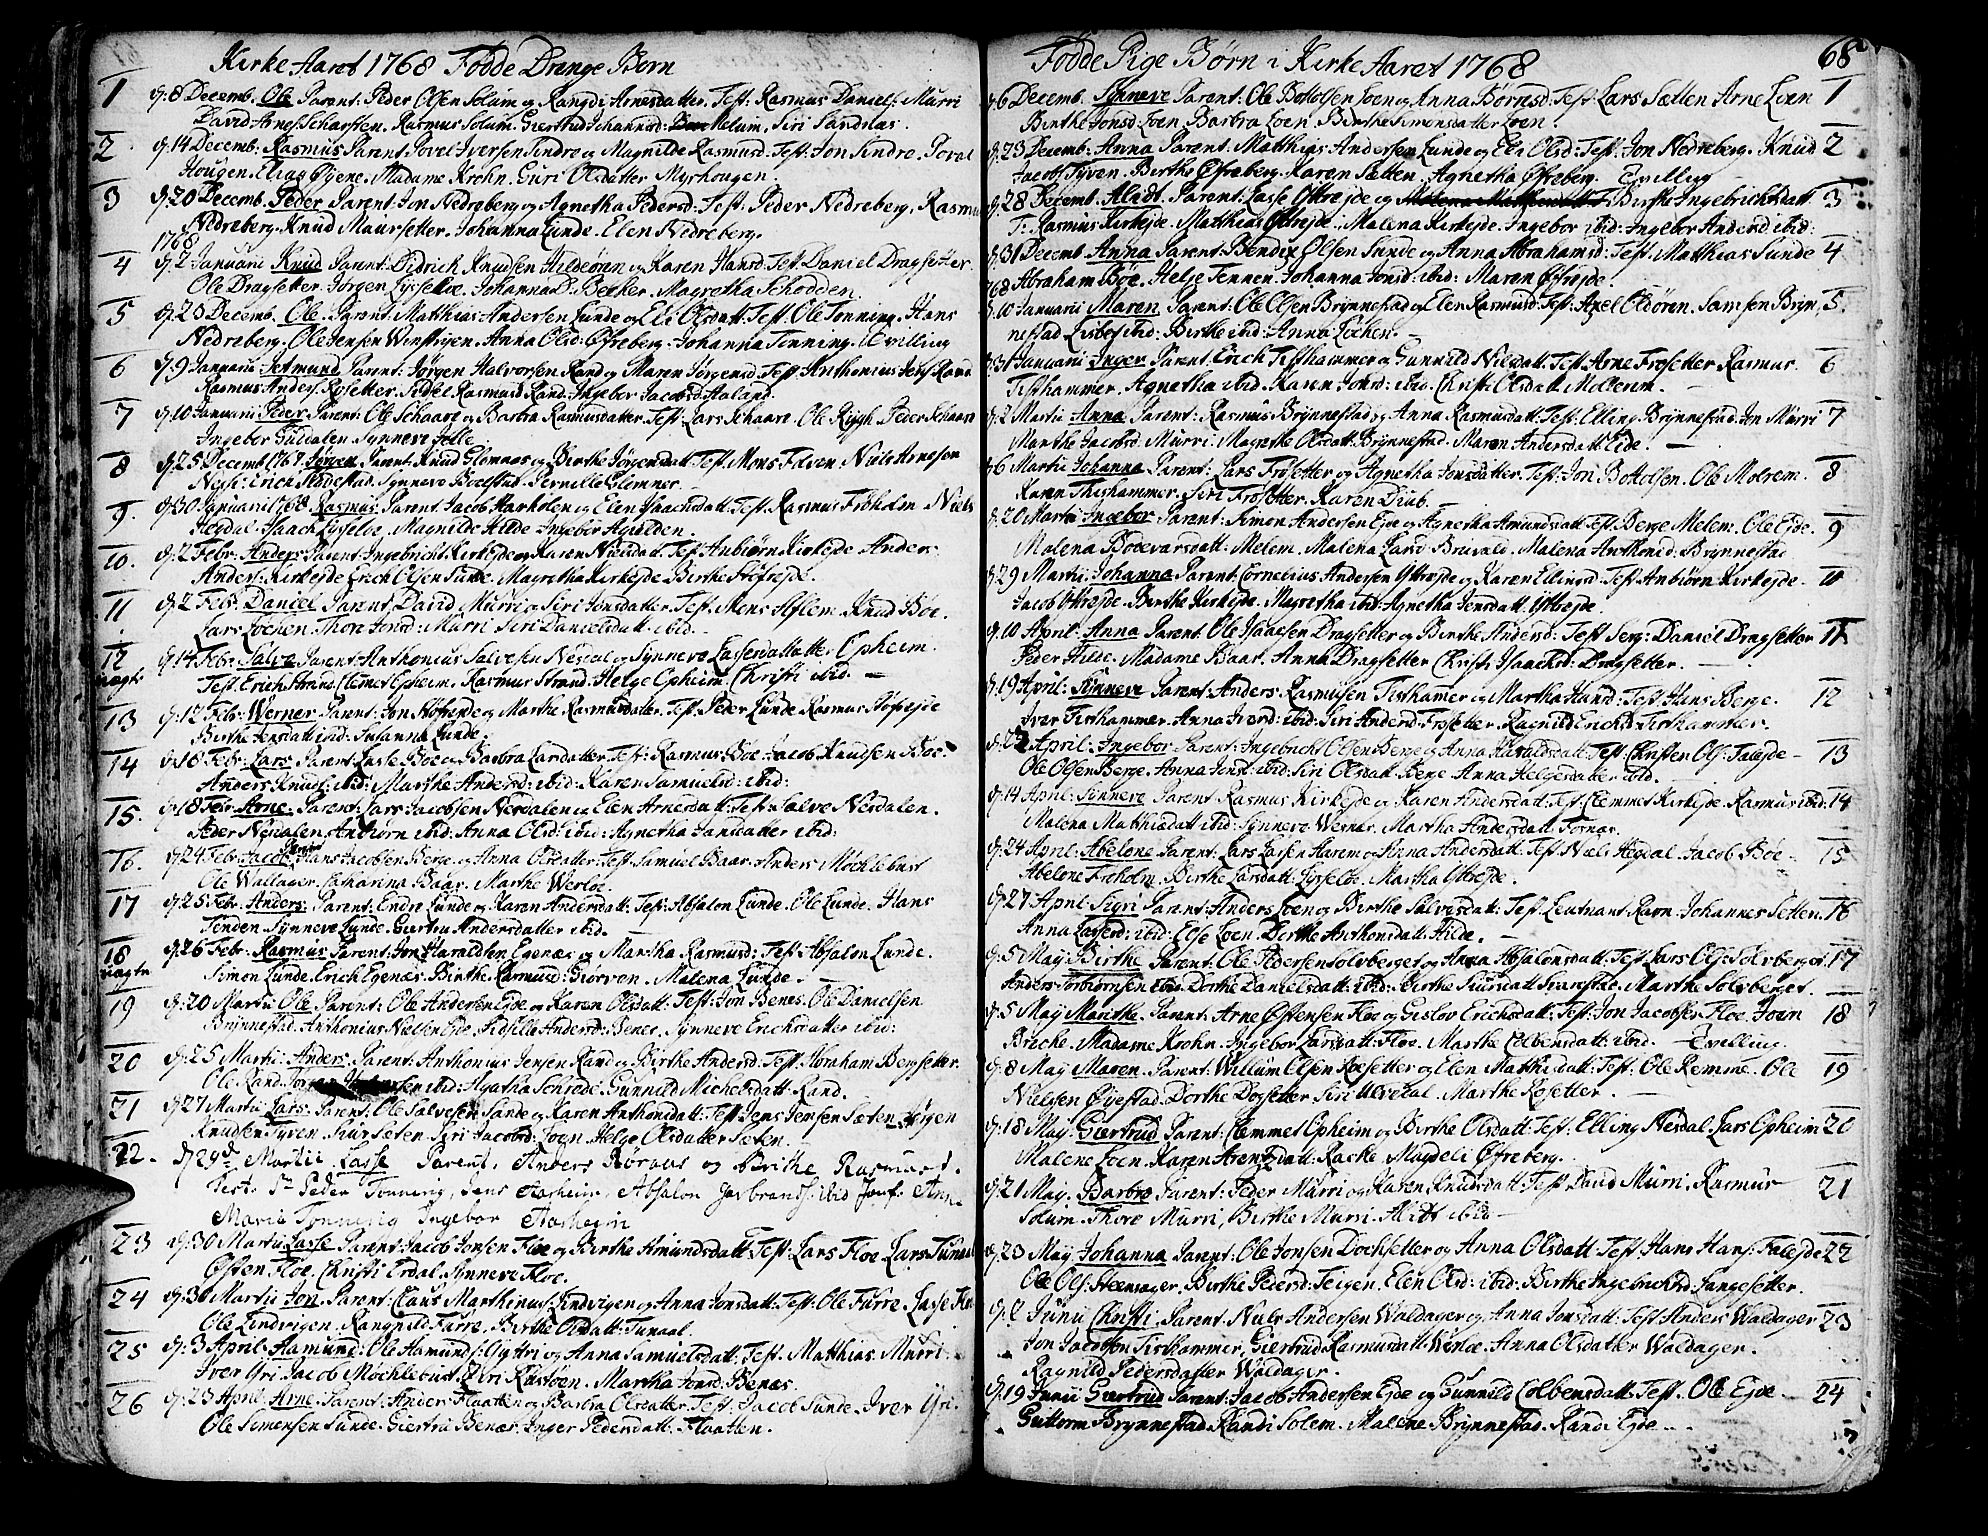 Kirke Aaret 1768 Födde Drenge Børn
1 d. 8 Decemb. Ole Parent: Peder Olsen Solum og Rangdi Arnesdatter. Test: Rasmus Daniels: Murri
David Arnes: Scharsten. Rasmus Solum. Giertrud Johannsd: Melum. Siri Sandnæs.
2 d. 14 Decemb: Rasmus Parent Povel Iversen Sindre og Magnilde Rasmusd: Test: Jon Sindre. Povel
Hougen. Elias Øyene. Madame Krohn. Guri Olsdatter Myrhougen.
3 d. 20 Decemb. Peder Parent: Jon Nedreberg og Agnetha Pedersd: Test: Peder Nedreberg. Rasmus
Nedreberg. Knud Maursetter. Johanna Lunde. Elen Nedreberg.
1768
4 d. 2 Januarii Knud Parent: Didrich Knudsen Hildeören og Karen Hansd: Test: Daniel Dragsetter
Ole Dragsetter. Jørgen Lysseloe. Johanna D. Becker. Magretha Schodden
5 d. 23 Decemb. Ole. Parent: Matthias Andersen Lunde og Eli Olsdatt: Test: Ole Tonning. Hans
Nedreberg. Ole Jensen Winsrygen. Anna Olsd: Øfreberg. Johanna Tonning. Tvilling
6 d. 9 Januarii Jetmund Parent: Jørgen Halvorsen Rand og Maren Jørgensd: Test: Anthonius Jens: Rand
Rasmus Anders: Rosetter. Sidsel Rasmusd Rand. Ingebor Jacobsd Haland.
7 d. 10 Januarii Peder. Parent: Ole Schaare og Barbra Rasmusdatter. Test: Lars Schaare. Ole Rygh. Peder Schaare
Ingebor Guldalen. Synneve
8 d. 25 Decemb 1767. Jørgen Parent: Knud Glomnes og Birthe Jørgensdatt: Test: Mons Folven. Niels Arnesen
Synneve Boelstad. Pernille Glomner.
9. d. 30 Januarii 1768. Rasmus Parent Jacob Harkolen og Elen Isaachsdatt: Test: Rasmus Froholm Niels
Hegdal. Isaach Lysseloe. Magnilde Hilde. Ingebor
10. d. 2 Febr: Anders Parent: Ingebricht Kirkejde og Karen Nielsdatt. Test: Anbiørn Kirkejde Anders
Anders: Kirkejde. Erich Olsen Sunde. Magretha Kirkejde. Birthe
11 d. 2 Febr: Daniel Parent: David Murri og Siri Jonsdatter. Test: Mons Aflem. Knud Böe.
Lars Lochen. Thore Jonsd: Murri. Siri Danielsdatt: ibid.
12 d. 14 Febr: Salve Parent: Anthonius Salvesen Nesdal og Synneve Lassesdatter Opheim.
nægt: Test: Erich Strand. Clemet Opheim. Rasmus Strand. Helge Opheim. Christi ibid.
13 d. 12 Febr: Werner Parent: Jon og Marthe Rasmusdatter. Test: Peder Lunde Rasmus
Birthe Jensdatt ibid: Susanna Lunde.
14 d. 18 Febr: Lars Parent: Lasse Böe og Barbra Larsdatter. Test: Rasmus Böe. Jacob Knudsen Böe.
Anders Knuds: ibid: Marthe Andersd: ibid: Karen Samuelsd: ibid:
15. d. 18 Febr: Arne. Parent: Lars Jacobsen Nesdalen og Elen Arnesdatt: Test: Salve Nesdalen.
Peder Nesdalen. Anbiørn ibid: Anna Olsd: ibid: Agnetha Jansdatter ibid:
16. d. 24 Febr: Jacob Hans Jacobsen Berge og Anna Olsdatter. Test: Samuel Baar. Anders Möchlebust
Ole Wallager. Catharina Baar. Marthe Werloe.
17 d. 25 Febr: Anders. Parent: Endre Lunde og Karen Andersdatt: Test: Absalon Lunde. Ole Lunde. Hans
Tenden. Synneve Lunde. Giertru Andersdatter ibid.
18 d. 26 Febr. Rasmus Parent: Jon Haraldsen Egenæs og Martha Rasmusd: Test: Absalon Lunde.
nægt: Simon Lunde. Erich Egenæs. Birthe Rasmusd: Giörven. Malena Lunde.
19 d. 20 Martii Ole Parent: Ole Andersen Ejde og Karen Olsdatt: Test: Jon Benes. Ole Danielsen
Brÿnnestad. Anthonius Nielsen Ejde. Sidselle Andersd: Benes. Synneve Erichsdatter ibid:
20 d. 25 Martii: Anders. Parent: Anthonius Jensen Rand og Birthe Andersd: Test: Abraham Bergsetter.
Ole Rand. ibid: Agatha Schrede. Gunnild Michelsdatt: Rand.
21 d. 27 Martii Lars. Parent: Ole Salvesen Sande og Karen Anthonsdatt: Test: Jens Jensen Sæten. Jörgen
Knudsen Tyven. Siur Seten. Siri Jacobsd: Loen. Helge Olsdatter Sæten.
22. d. 29d Martii Lasse Parent, Anders Röraus og Brithe Rasmusd.
Test. Sr Peder Tonning, Jens Aarheim, Absalon Jarbrands: ibid Jomf: Ane
Maria Tonning Ingebor Aarheim
23 d. 30 Martii Lasse. Parent: Jacob Jonsen Floe og Birthe Amundsdatt: Test: Lars Floe. Lars Tunoal
Østen Floe. Christi Erdal. Synneve Floe.
24 d. 30 Martii Jon. Parent: Claus Marthinus: Lindvigen og Anna Jonsdatt: Test: Ole Furre. Lasse
Ole Lindvigen. Rangnild Furre. Birthe Olsdatt: Tunoal.
25 d. 3 April: Aamund: Ole Aamunds: Gytri og Anna Samuelsdatt: Test. Matthias Murri.
Iver Yri. Jacob Möchlebust. Eli Rustöen. Martha Jonsd: Benæs.
26 d. 23 April. Arne. Parent: Ander Flaatten og Barbra Olsdatter. Test: Jacob Sunde. Iver Yri.
Ole Simensen Sunde. Giertru Benæs. Inger Pedersdatt: Flaatten.
Födde Pige Börn i Kirke Aaret 1768 68
d. 6 Decemb. Synneve Parent: Ole Bottolsen Loen og Anna Børnsd: Test: Lars Sætten Arne Loen 1
Birthe Jonsd: Loen Barbra Loen. Birthe Simensdatter Loen
d. 23 Decemb: Anna Parent: Matthias Andersen Lunde og Eli Olsd: Test: Jon Nedreberg. Knud 2
Jacobs: Tyven. Birthe Øfreberg. Karen Sætten. Agnetha Øfreberg. Tvilling
d. 28 Decemb. Alidt. Parent: Lasse Yttrejde og Birthe Ingebrichtsdatt 3
T: Rasmus Kirkejde. Matthias Yttrejde. Malena Kirkejde. Ingebor ibid: Ingebor Andersd ibid:
d. 31 Decemb Anna Parent: Bendix Olsen Sunde og Anna Abrahamsd: Test: Matthias Sunde 4
Abraham Böe. Helje Tennen. Johanna Jonsd: ibid: Maren Øfrejde.
d. 10 Januarii Maren Parent: Ole Olsen Brÿnnestad og Elen Rasmusd: Test: Axel Oldören. Samsen Bryn 5.
nestad Lisbet ibid: Birthe ibid: Anna Lochen.
d. 31 Januarii Inger Parent: Erich Tisthammer og Gunnild Nilsdatt: Test: Arne Frosetter Rasmus. 6
Tisthammer. Agnetha ibid: Karen Jonsd: ibid: Christi Olsdatt Mellem.
d. 2 Martii Anna Parent: Rasmus Brÿnnestad og Anna Rasmusdatt: Test: Elling Brÿnnestad Jon Murri 7
Marthe Jacobsd: Murri. Magrethe Olsdatt: Brÿnnestad. Maren Andersdatt Ejde.
d. 6 Martii Johanna Parent: Lars Frosetter og Agnetha Jonsdatter. Test: Jon Bottolsen. Ole Molrem. 8
Karen Thishammer. Siri Frosetter. Karen Diub.
d. 20 Martii Ingebor Parent: Simon Andersen Ejde og Agnetha Amundsdatt: Test: Berge Melem. Ole Ejde. 9
Malena Boevarsdatt: Melem. Malena Larsd: Bruvald. Malena Anthonsd: Brÿnnestad
d. 29 Martii. Johanna Parent: Cornelius Andersen Yttrejde og Karen Ellingsd: Test: Anbiörn Kirkejde. 10
Jacob Yttrejde. Birthe Kirkejde. Magretha ibid: Agnetha Jensdatt: Yttrejde.
d. 10 April. Anna Parent: Ole Isaacsen Dragsetter og Birthe Andersd: Test: Serg: Daniel Dragsetter 11
Peder Hilde. Madame Baar. Anna Dragsetter. Christi Isaachsd: Dragsetter.
d. 19 April: Synneve Parent: Anders Rasmusen Tisthamer og Martha Hansd: Test: Hans Berge. 12
Iver Tisthammer. Anna Iversd: ibid: Siri Andersd Frosetter. Ragnild Erichsd: Tisthammer.
d. 22 April: Ingebor Parent: Ingebricht Olsen Berge og Anna Haraldsdatt: Test: Christen Ols: Falejde 13
Ole Olsen Berge. Anna Jensd ibid: Siri Olsdatt Berge Anna Helgesdatter ibid.
d. 14 April: Synneve Parent Rasmus Kirkejde og Karen Andersdatt: Test: Clemmet Kirkejde. Rasmus ibid: 14
Malena Mathiasdatt ibid: Synneve Wernær. Martha Andersdatt: Fosnæs.
d. 24 April: Abelone Parent: Lars Larsen Aarem og Anna Andersdatt: Test: Niels Hegdal. Jacob Böe 15
Abelone Froholm. Birthe Larsdatt: Lysseloe. Martha Yttrejde.
d. 27 April Sigri Parent: Anders Loen og Birthe Salvesdatt: Test: Leutnant Ravn. Johannes Setten 16
Anna Lassesd: ibid: Else Loen. Dorthe Anthonsdatt: Hilde.
d. 5 May Birthe Parent: Ole Pedersen Solvberget og Anna Absalonsdatt: Test: Lars Ols: Solvberget 17
Anders Torbiörnsen ibid: Dorthe Danielsdatt: ibid: Birthe Siursdatt: Svarstad. Marthe Solvberget.
d. 5 May Marthe. Parent: Arne Østensen Floe og Gislov Erichsdatt: Test: Jon Jacobsen Floe. Joen 18
Bricke. Madame Krohn. Ingebor Larsdatt: Floe. Marthe Colbensdatt: ibid. Tvilling.
d. 8 May Maren. Parent: Willum Olsen Rosetter og Elen Mathisdatt: Test: Ole Remme. Ole 19
Nielsen Öyestad. Dorthe Dorsetter. Siri Ulvedal. Marthe Rosetter.
d. 18 May. Giertrud Parent: Clemmet Opheim og Birthe Olsdatt: Test: Elling Nesdal. Lars Opheim 20
Malene Loen. Karen Arentzdatt: Racke. Magdeli Øfreberg.
d. 21 May. Barbro Parent: Peder Murri og Karen Knudsdatt: Test: David Murri. Rasmus 21
Solum. Thore Murri. Birthe Murri. Alidt ibid
d. 23 May Johanna Parent: Ole Jonsen Dochsetter og Anna Olsdatt Test: Hans Hans: Falejde 22
Ole Ols: Steensager. Birthe Pedersd: Teigen. Elen Olsd: ibid: Birthe Ingebrichtsd: Langesetter.
d. 2 Junii Christi Parent: Niels Andersen Waldager og Anna Jonsdatt: Test: Anders Waldager 23
Jon Jacobsen Tisthammer. Giertrud Rasmusdatt: Werloe. Anna Olsdatter Waldager.
Ragnild Pedersdatter Waldager.
d. 19 Junii Giertrud Parent: Jacob Andersen Ejde og Gunnild Colbensdatt: Test: Ole Ejde 24
Guttorm Brÿnnestad Randi Solem. Malene Brÿnnestad. Randi Ejde.